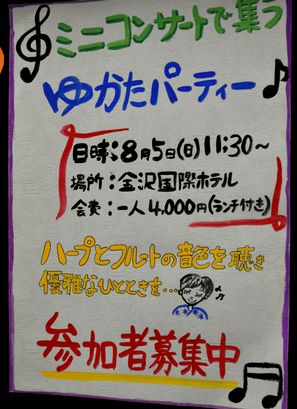 ミニコンサートで集う
ゆかたパーティー
日時：8月5日(日)11:30〜
場所：金沢国際ホテル
会費：一人4,000円(ランチ付き)
ハープとフルートの音色を聴き
優雅なひとときを…
参加者募集中